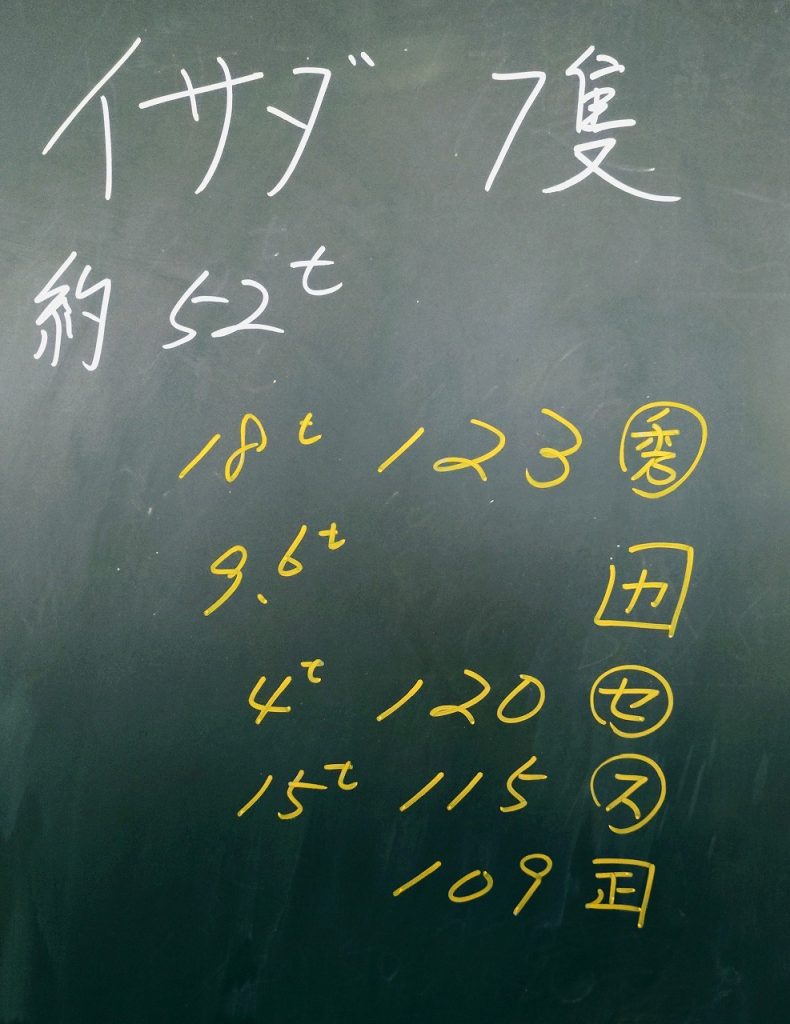 イサダ 7隻
約 52t
18t 123 ㊎
9.6t カ
4t 120 セ
15t 115 ス
109 正